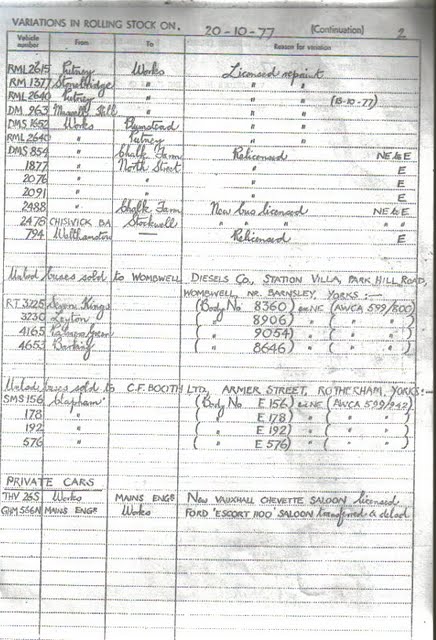 VARIATIONS IN ROLLING STOCK ON. 20-10-77 (Continuation) 2
Vehicle number From To Reason for variation
RML 2615 Putney Works Licensed repaint
RM 1377 Stonebridge " " "
RML 2640 Putney " " " (13-10-77)
DM 963 Muswell Hill " " "
DMS 1652 Works Plumstead " "
RML 2640 " Putney " "
DMS 854 " Chalk Farm Relicensed NE & E
1877 " North Street " E
2076 " " " E
2091 " " " E
2488 " Chalk Farm New bus licensed NE & E
2476 CHISWICK BA Stockwell " " " " "
794 Walthamstow — Relicensed E
Unlicd buses sold to WOMBWELL DIESELS CO., STATION VILLA, PARK HILL ROAD,
WOMBWELL, NR. BARNSLEY, YORKS:
RT 3225 Seven Kings (Body No 8360) NE (AWCA 599/800)
3230 Leyton ( " 8906) " ( " " )
4165 Palmers Green ( " 9054) " ( " " )
4653 Barking ( " 8646) " ( " " )
Unlicd buses sold to C.F. BOOTH LTD, ARMER STREET, ROTHERHAM, YORKS:-
SMS 156 Clapham (Body No E 156) NE (AWCA 599/942)
178 " ( " E 178) " ( " " )
192 " ( " E 192) " ( " " )
576 " ( " E 576) " ( " " )
PRIVATE CARS
THV 26S Works MAINS ENGR New VAUXHALL CHEVETTE SALOON licensed
566N MAINS ENGR Works FORD 'ESCORT 1100' SALOON transferred & delicd